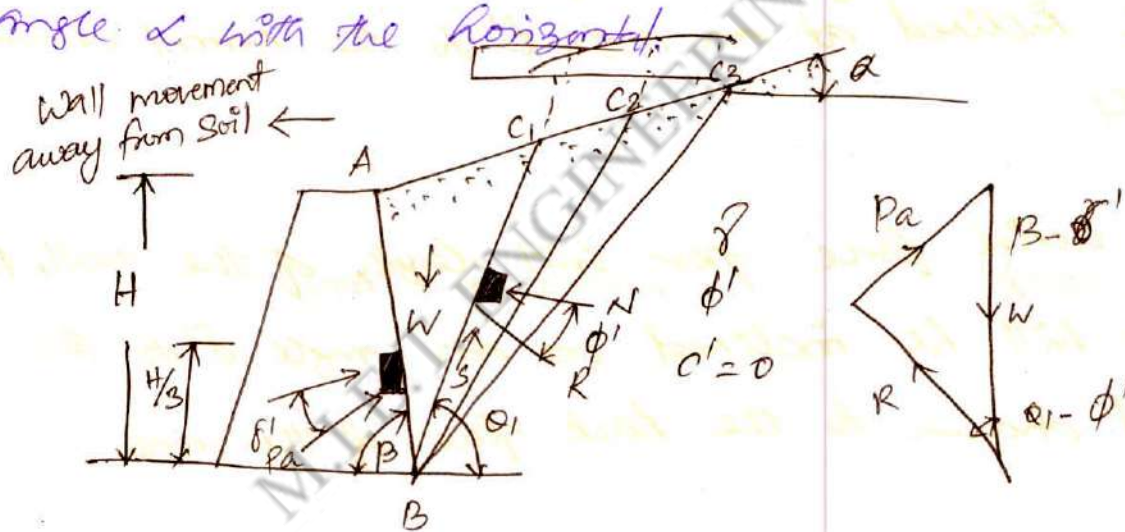 angle α with the horizontal.
Wall movement
away from soil ←
A
C1
C2
C3
α
H
H/3
W
S
N
φ'
R
γ
φ'
c' = 0
δ'
Pa
β
θ1
B
Pa
β-δ'
W
R
θ1-φ'
M.I.E.T ENGINEERIN